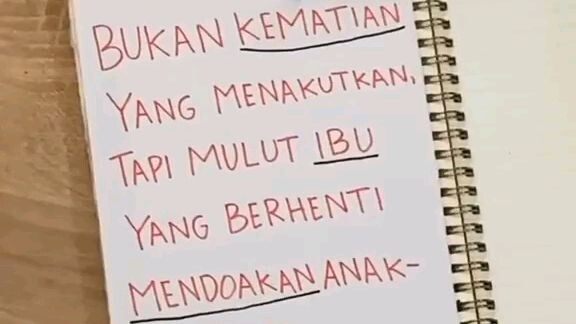 BUKAN KEMATIAN
YANG MENAKUTKAN,
TAPI MULUT IBU
YANG BERHENTI
MENDOAKAN ANAK-